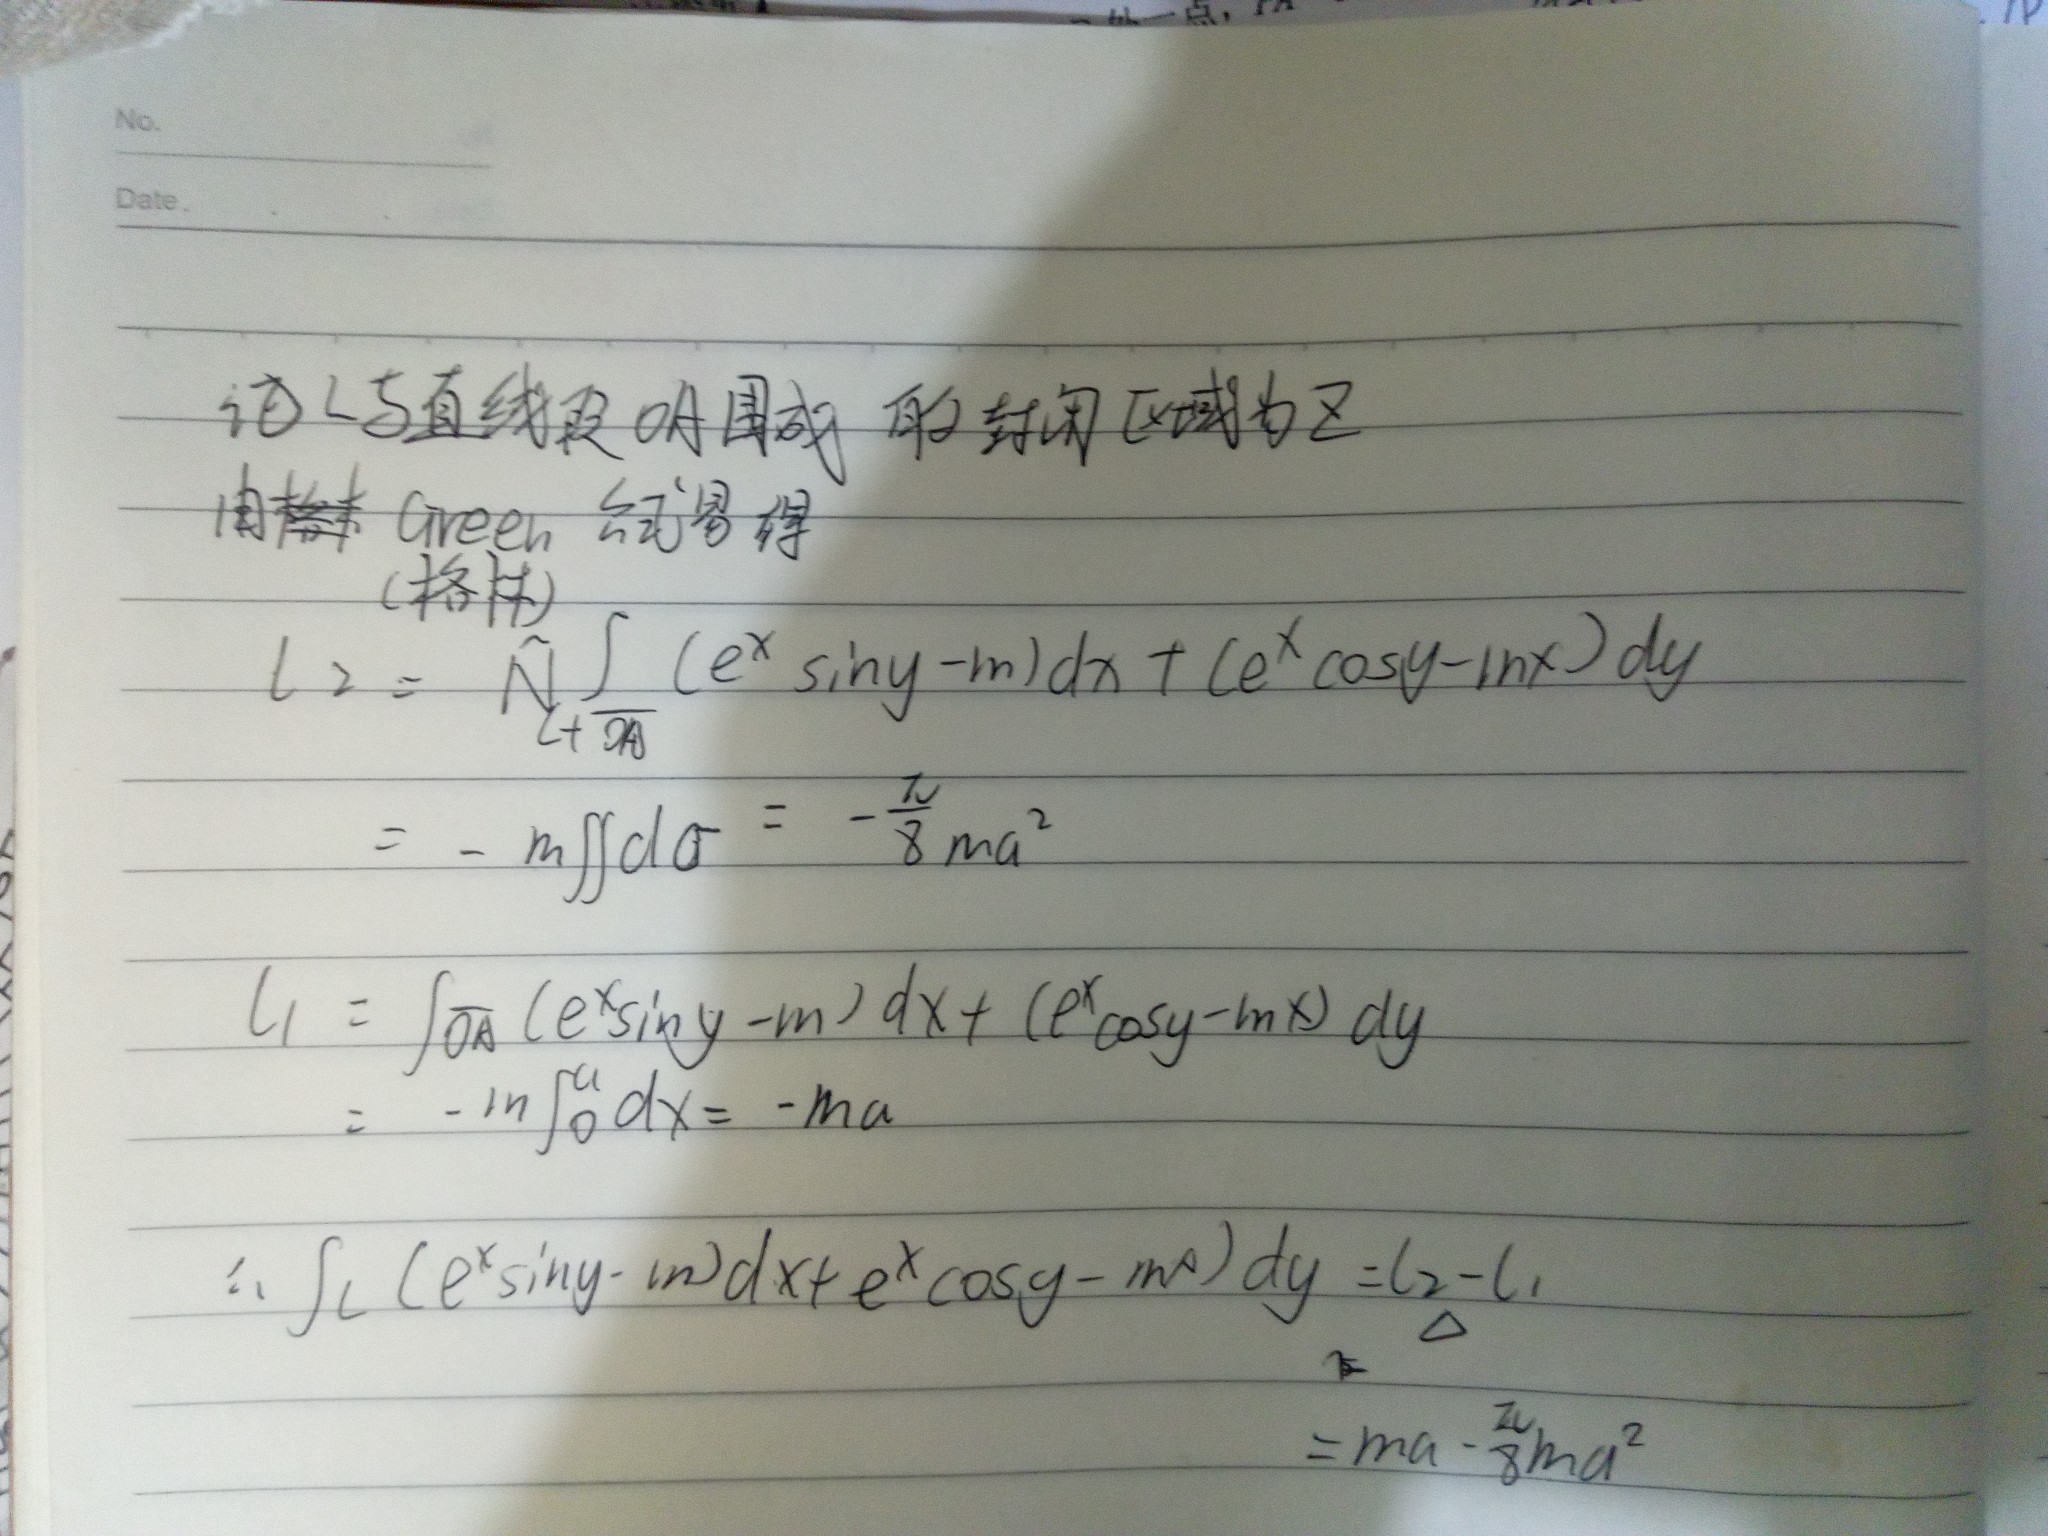 No.
Date.
记L与直线段OA围成的封闭区域为Z
由 Green 公式易得
(格林)
l2 = Ñ∫_{L+\overline{OA}} (e^x siny-m)dx+(e^x cosy-mx)dy
= -m∬dσ = -π/8 ma²
l1 = ∫_{\overline{OA}} (e^x siny-m)dx+(e^x cosy-mx)dy
= -m∫_0^a dx= -ma
∴ ∫_L (e^x siny-m)dx+e^x cosy-mx)dy =l2-l1
= ma-π/8 ma²